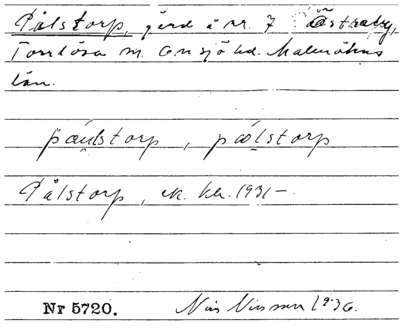 Pålstorp, gård å nr. 7 Östraby,
Torrlösa sn. Onsjö hd. Malmöhus
län.
påulstorp, pålstorp
Pålstorp, ek. kb. 1931–
Nr 5720. Nils Nilsson 1936.